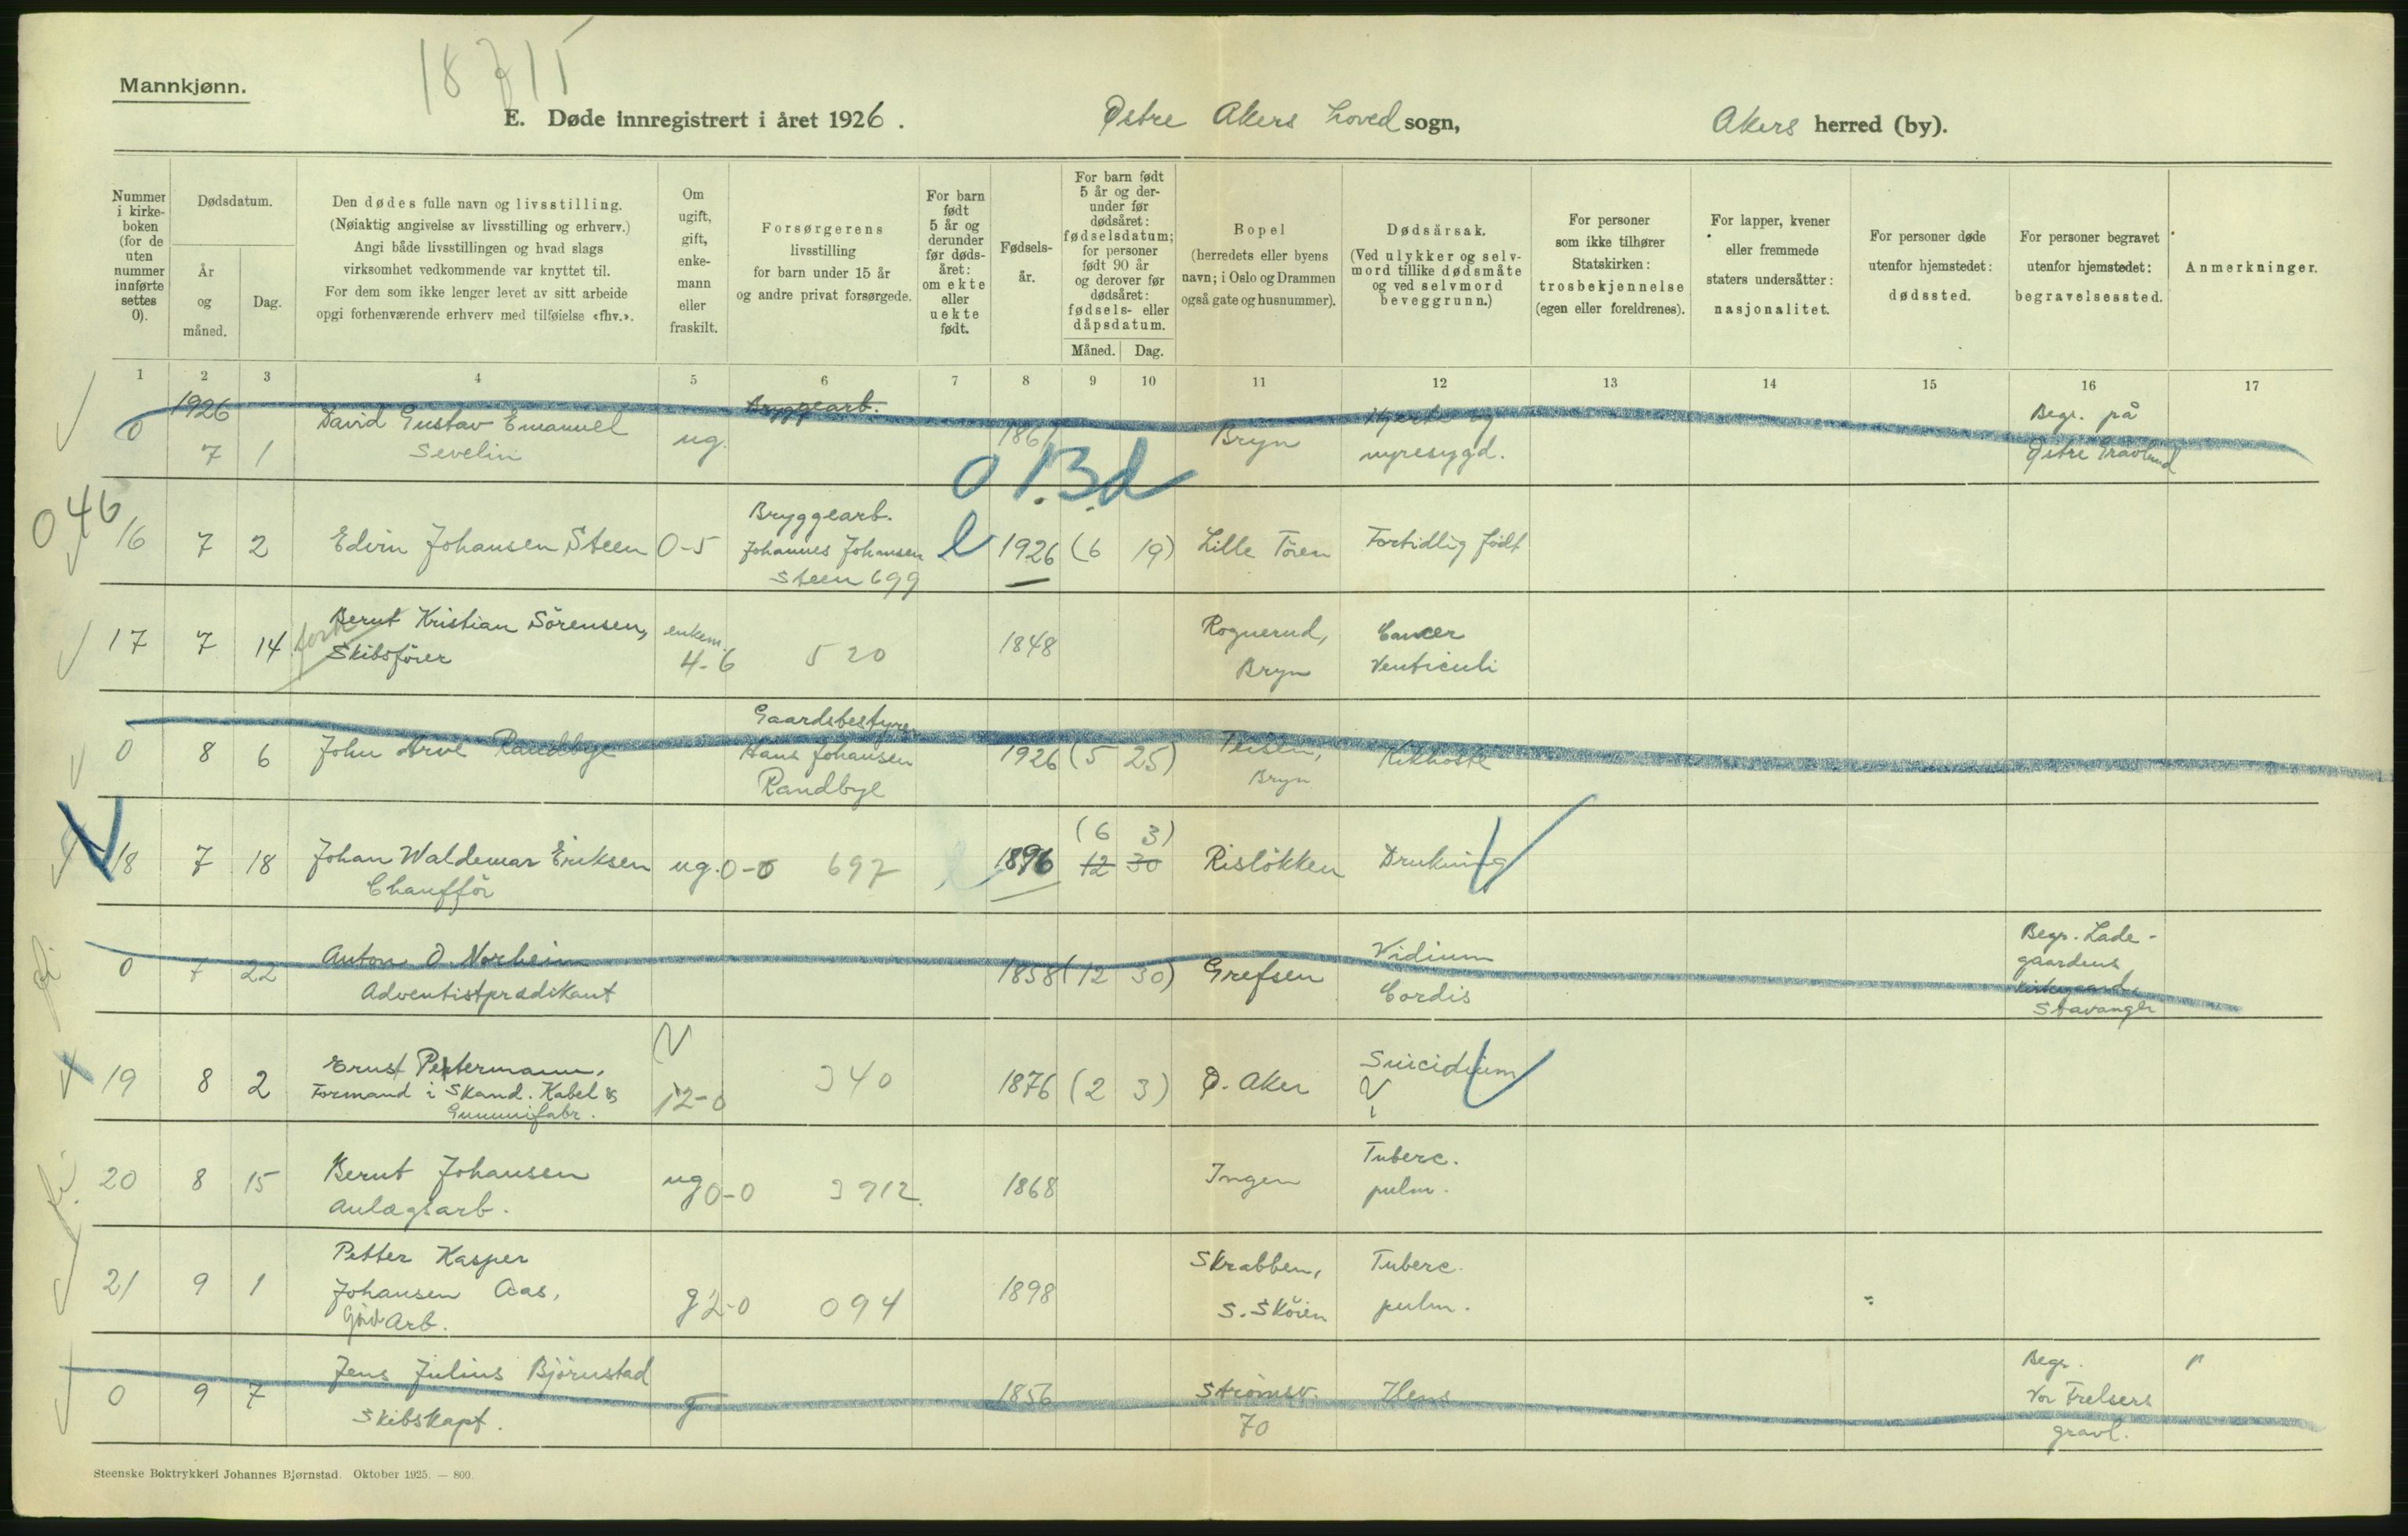 Mannkjønn.
18715
E. Døde innregistrert i året 1926. Østre Akers Hoved sogn, Akers herred (by).
Nummer i kirkeboken (for de uten nummer innførte settes 0).
Dødsdatum.
År og måned.
Dag.
Den dødes fulle navn og livsstilling.
(Nøiaktig angivelse av livsstilling og erhverv.)
Angi både livsstillingen og hvad slags
virksomhet vedkommende var knyttet til.
For dem som ikke lenger levet av sitt arbeide
opgi forhenværende erhverv med tilføielse «fhv.».
Om ugift, gift, enkemann eller fraskilt.
Forsørgerens
livsstilling
for barn under 15 år
og andre privat forsørgede.
For barn født 5 år og derunder før dødsåret: om ekte eller uekte født.
Fødselsår.
For barn født 5 år og derunder før dødsåret: fødselsdatum; for personer født 90 år og derover før dødsåret: fødsels- eller dåpsdatum.
Måned. Dag.
Bopel
(herredets eller byens
navn; i Oslo og Drammen
også gate og husnummer).
Dødsårsak.
(Ved ulykker og selvmord tillike dødsmåte
og ved selvmord
beveggrunn.)
For personer
som ikke tilhører
Statskirken:
trosbekjennelse
(egen eller foreldrenes).
For lapper, kvener
eller fremmede
staters undersåtter:
nasjonalitet.
For personer døde
utenfor hjemstedet:
dødssted.
For personer begravet
utenfor hjemstedet:
begravelsessted.
Anmerkninger.
1 2 3 4 5 6 7 8 9 10 11 12 13 14 15 16 17
1926
0 7 1 David Gustav Emanuel Sevelin ug. Bryggearb. 1867 Bryn Hjerte og nyresygd. Begr. på Østre Gravlund
0 13 d
046
16 7 2 Edvin Johansen Steen 0-5 Bryggearb. Johannes Johansen Steen 699 1926 (6 19) Lille Tøien Fortidlig født
17 7 14 Bernt Kristian Sörensen, Skibsförer enkem. 4-6 520 1848 Rognerud, Bryn Cancer Ventriculi
0 8 6 John Arve Randbye Gaardsbestyrer Hans Johansen Randbye 1926 (5 25) Teisen, Bryn Kikhoste
18 7 18 Johan Waldemar Eriksen Chaufför ug. 0-0 697 1896 (6 3) 12 30 Rislökken Drukning
0 7 22 Anton O. Norheim Adventistprædikant 1858 (12 30) Grefsen Vidium Cordis Begr. Ladegaardens Kirkegaard, Stavanger
19 8 2 Ernst Petermann, Formand i Skand. Kabel & Gummifabr. 12-0 340 1876 (2 3) Ø. Aker Suicidium
20 8 15 Bernt Johansen Anlægsarb. ug 0-0 3912 1868 Ingen Tuberc. pulm.
21 9 1 Petter Kasper Johansen Aas, Arb. g 2-0 094 1898 Skrabben, S. Sköien Tuberc. pulm.
0 9 7 Jens Julius Björnstad Skibskapt. g 1856 Strömsv. 70 Ileus Begr. Vor Frelsers gravl. "
Steenske Boktrykkeri Johannes Bjørnstad. Oktober 1925. — 800.